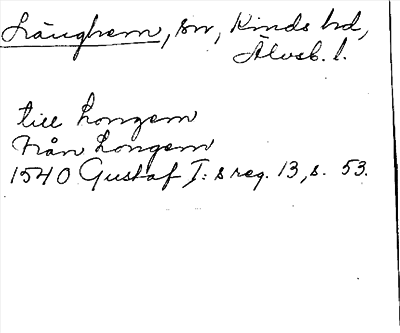 Länghem, sn, Kinds hd,
Älvsb. l.
till Longem
från Longem
1540 Gustaf I:s reg. 13, s. 53.